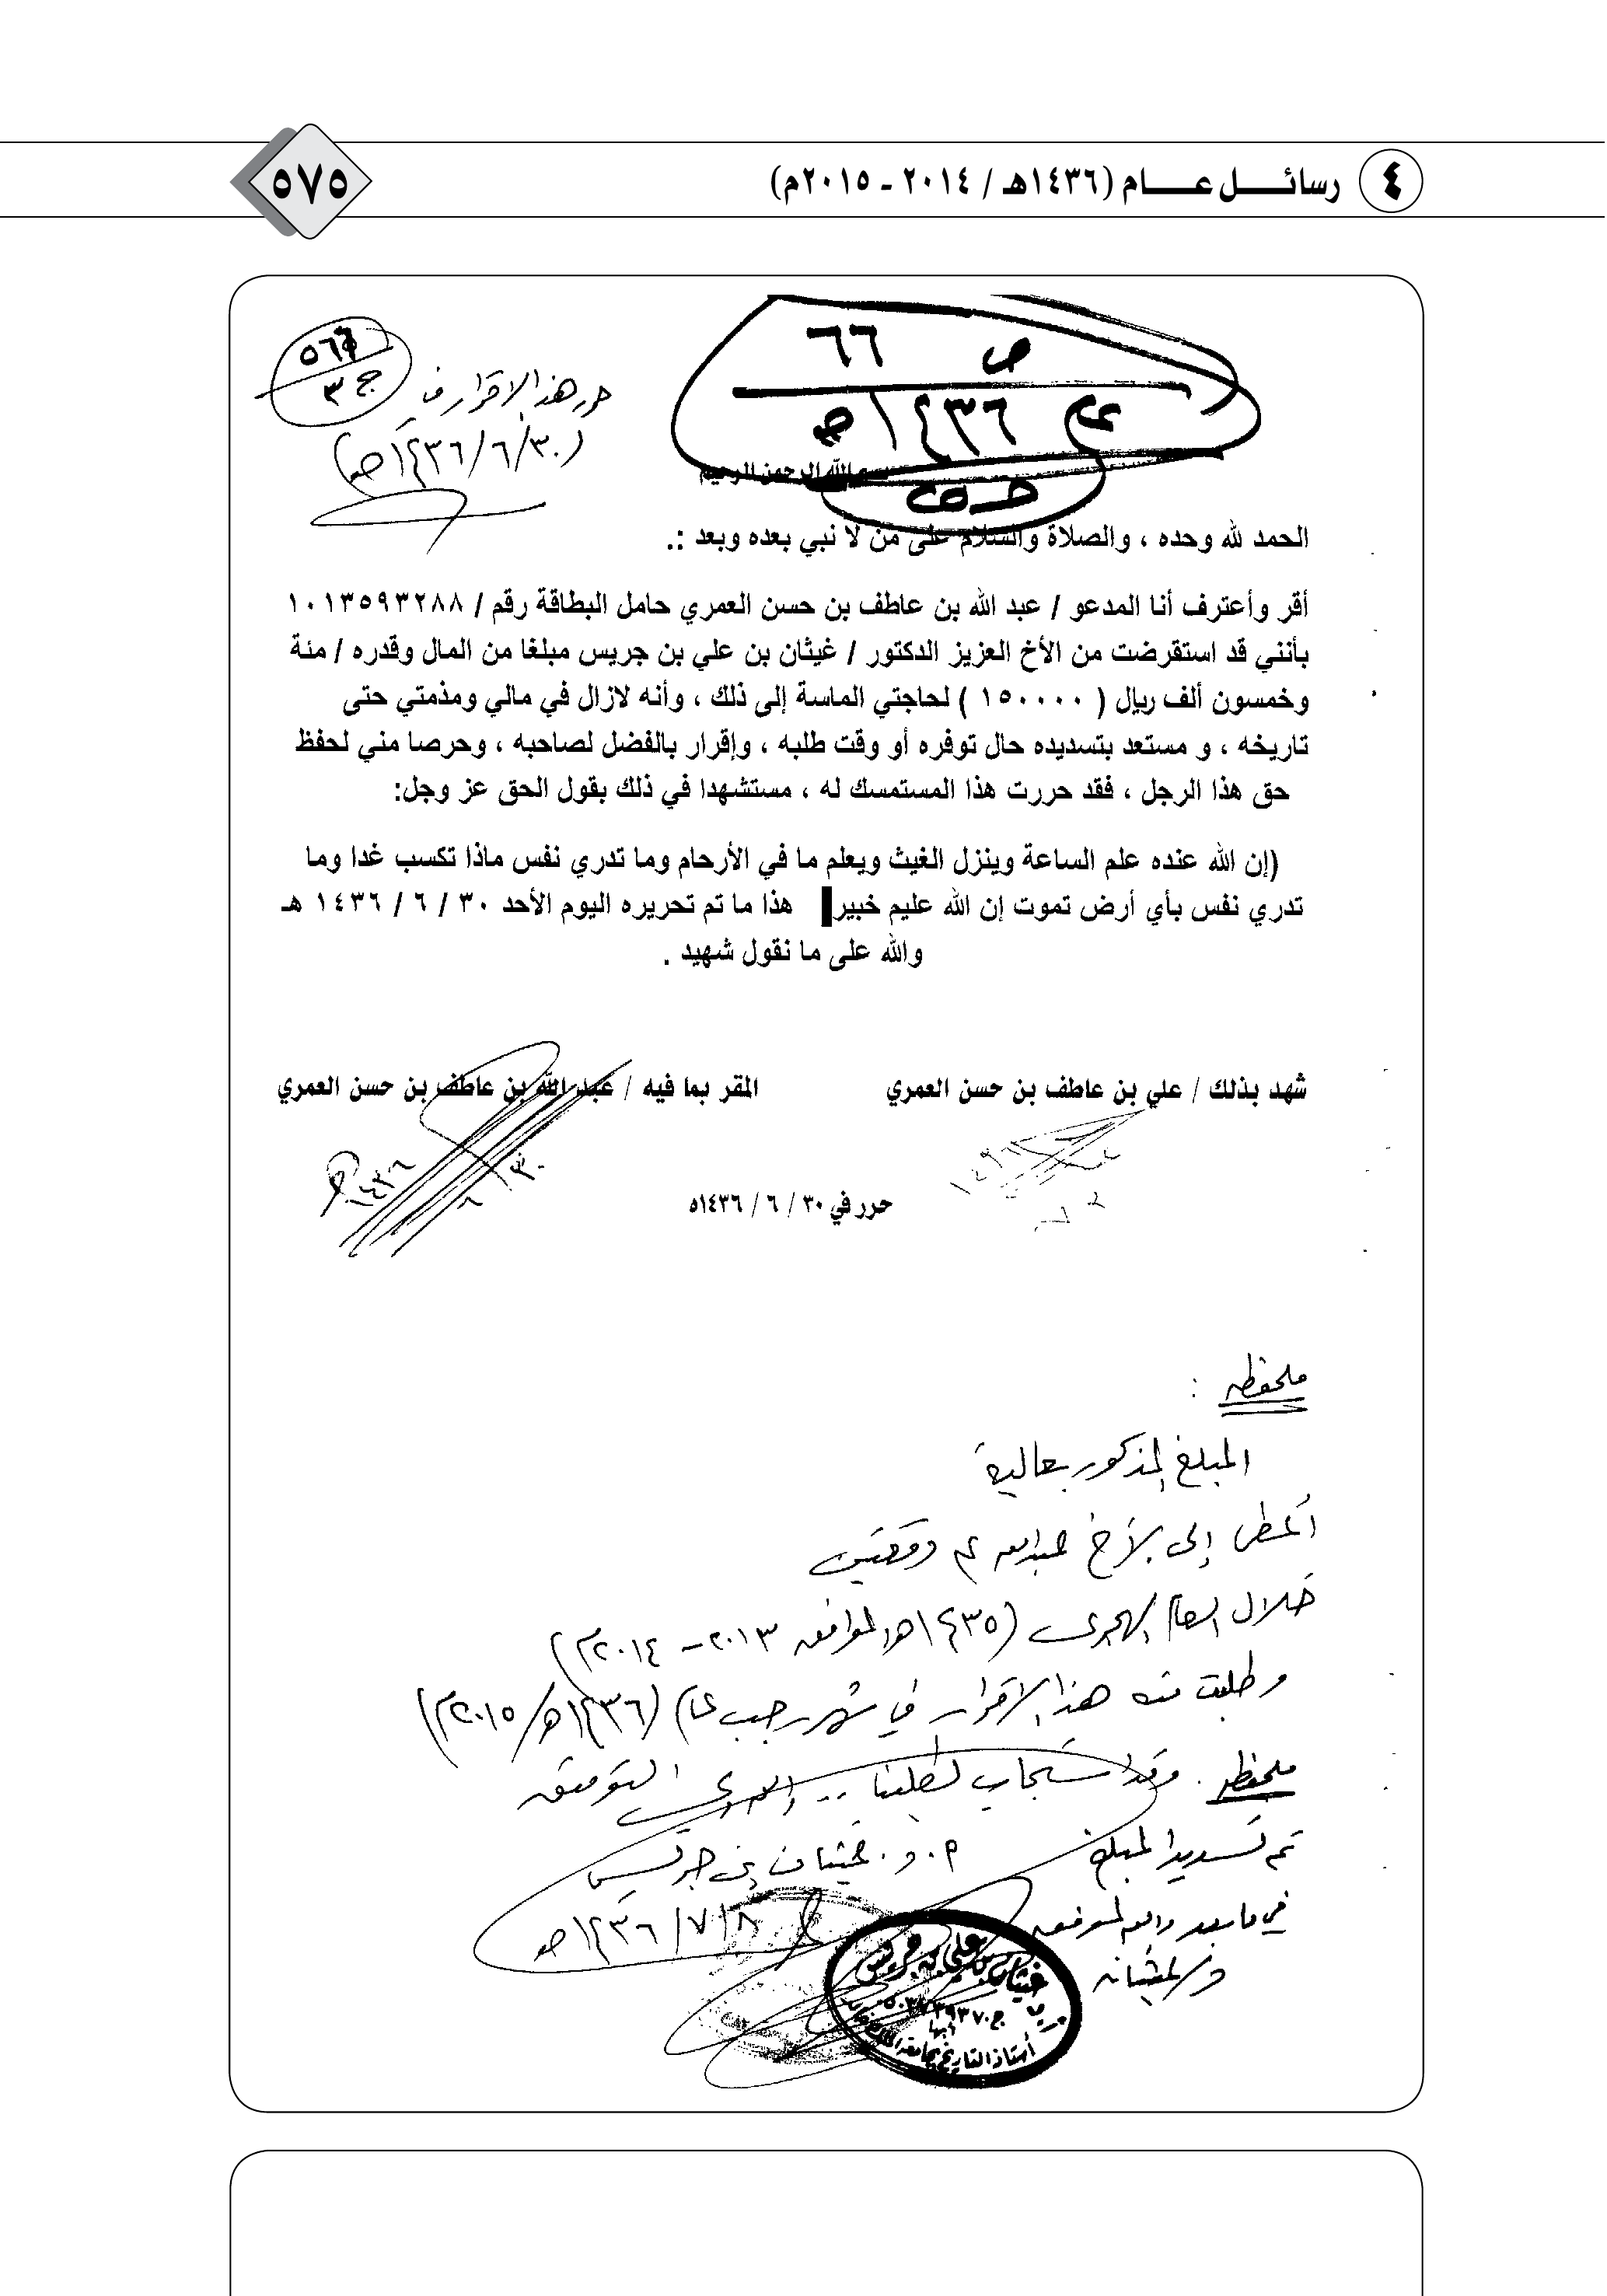 ٤ رسائـــل عـــــام (١٤٣٦هـ / ٢٠١٤ - ٢٠١٥م)
٥٧٥
ص ٦٦
عام ١٤٣٦هـ
ج ٣
حرر هذا الإقرار في
(٣٠/٦/١٤٣٦هـ)
بسم الله الرحمن الرحيم
الحمد لله وحده ، والصلاة والسلام على من لا نبي بعده وبعد :.
أقر وأعترف أنا المدعو / عبد الله بن عاطف بن حسن العمري حامل البطاقة رقم / ١٠١٣٥٩٣٢٨٨
بأنني قد استقرضت من الأخ العزيز الدكتور / غيثان بن علي بن جريس مبلغا من المال وقدره / مئة
وخمسون ألف ريال ( ١٥٠٠٠٠ ) لحاجتي الماسة إلى ذلك ، وأنه لازال في مالي ومذمتي حتى
تاريخه ، و مستعد بتسديده حال توفره أو وقت طلبه ، وإقرار بالفضل لصاحبه ، وحرصا مني لحفظ
حق هذا الرجل ، فقد حررت هذا المستمسك له ، مستشهدا في ذلك بقول الحق عز وجل:
(إن الله عنده علم الساعة وينزل الغيث ويعلم ما في الأرحام وما تدري نفس ماذا تكسب غدا وما
تدري نفس بأي أرض تموت إن الله عليم خبير هذا ما تم تحريره اليوم الأحد ٣٠ / ٦ / ١٤٣٦ هـ
والله على ما نقول شهيد .
شهد بذلك / علي بن عاطف بن حسن العمري
المقر بما فيه / عبد الله بن عاطف بن حسن العمري
٣٠/٦/١٤٣٦
حرر في ٣٠ / ٦ / ١٤٣٦ه
ملحظه :
المبلغ المذكور بعاليه
أعطي إلى الأخ عبدالله على دفعتين
خلال العام الهجري (١٤٣٥هـ الموافق ٢٠١٣ - ٢٠١٤م)
وطلبت منه هذا الإقرار في شهر رجب عام (١٤٣٦هـ/٢٠١٥م)
وقد استجاب لطلبنا .. والله ولي التوفيق
أ.د. غيثان بن جريس
٨/٧/١٤٣٦هـ
ملحظه
تم تسديد المبلغ
في ما بعد والله الموفق
غيثان بن علي بن جريس
أبها
أستاذ التاريخ بجامعة الملك خالد